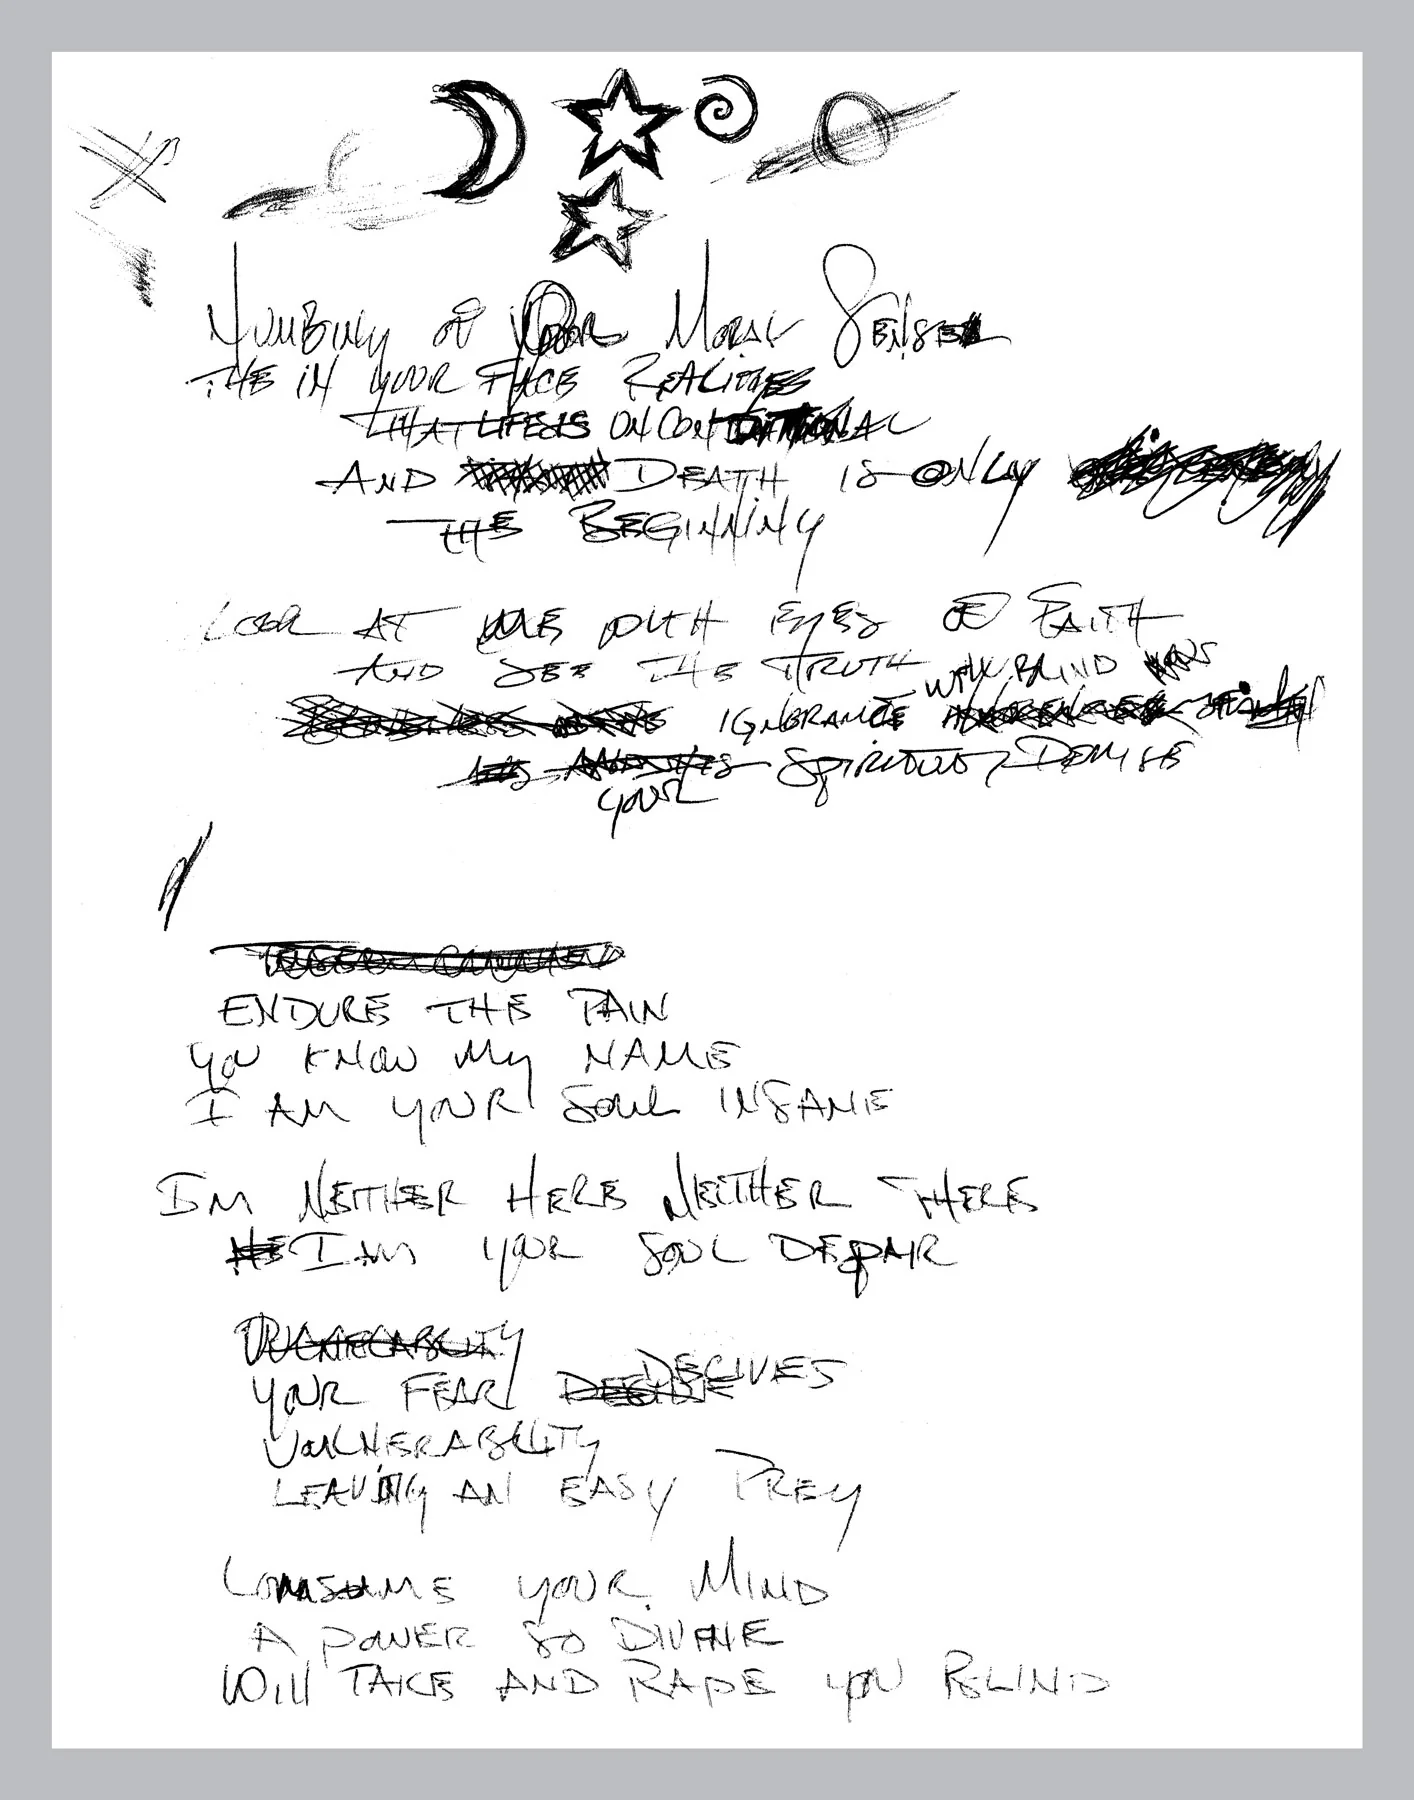 NUMBING OF YOUR MORAL SENSE
THE IN YOUR FACE REALITIES
THAT LIFE IS UNCONDITIONAL
AND DEATH IS ONLY
THE BEGINNING
LOOK AT ME WITH EYES OF FAITH
AND SEE THE TRUTH
WILL BLIND
IGNORANCE
SPIRITUAL DEMISE
YOUR
ENDURE THE PAIN
YOU KNOW MY NAME
I AM YOUR SOUL INSANE
IM NEITHER HERE NEITHER THERE
I AM YOUR SOUL DESPAIR
VULNERABILITY
YOUR FEAR DECIVES
VULNERABILITY
LEAVING AN EASY PREY
CONSUME YOUR MIND
A POWER SO DIVINE
WILL TAKE AND RAPE YOU BLIND